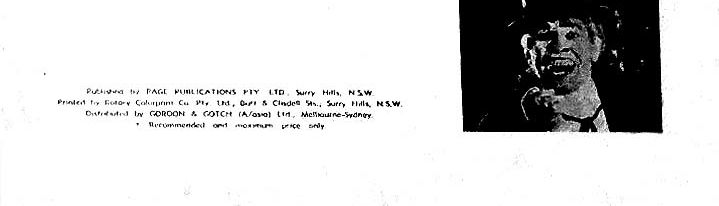 Published by PAGE PUBLICATIONS PTY. LTD., Surry Hills, N.S.W.
Printed by Rotary Colorprint Co. Pty. Ltd., & Sts., Surry Hills, N.S.W.
Distributed by GORDON & GOTCH (A/asia) Ltd., Melbourne-Sydney.
* Recommended and maximum price only